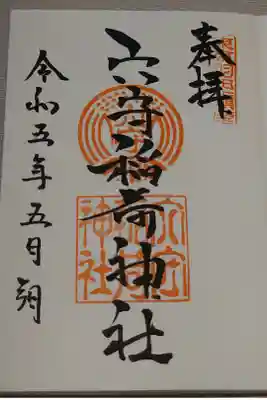 奉拝
穴守稲荷神社
令和五年五月朔
穴守
稲荷
神社